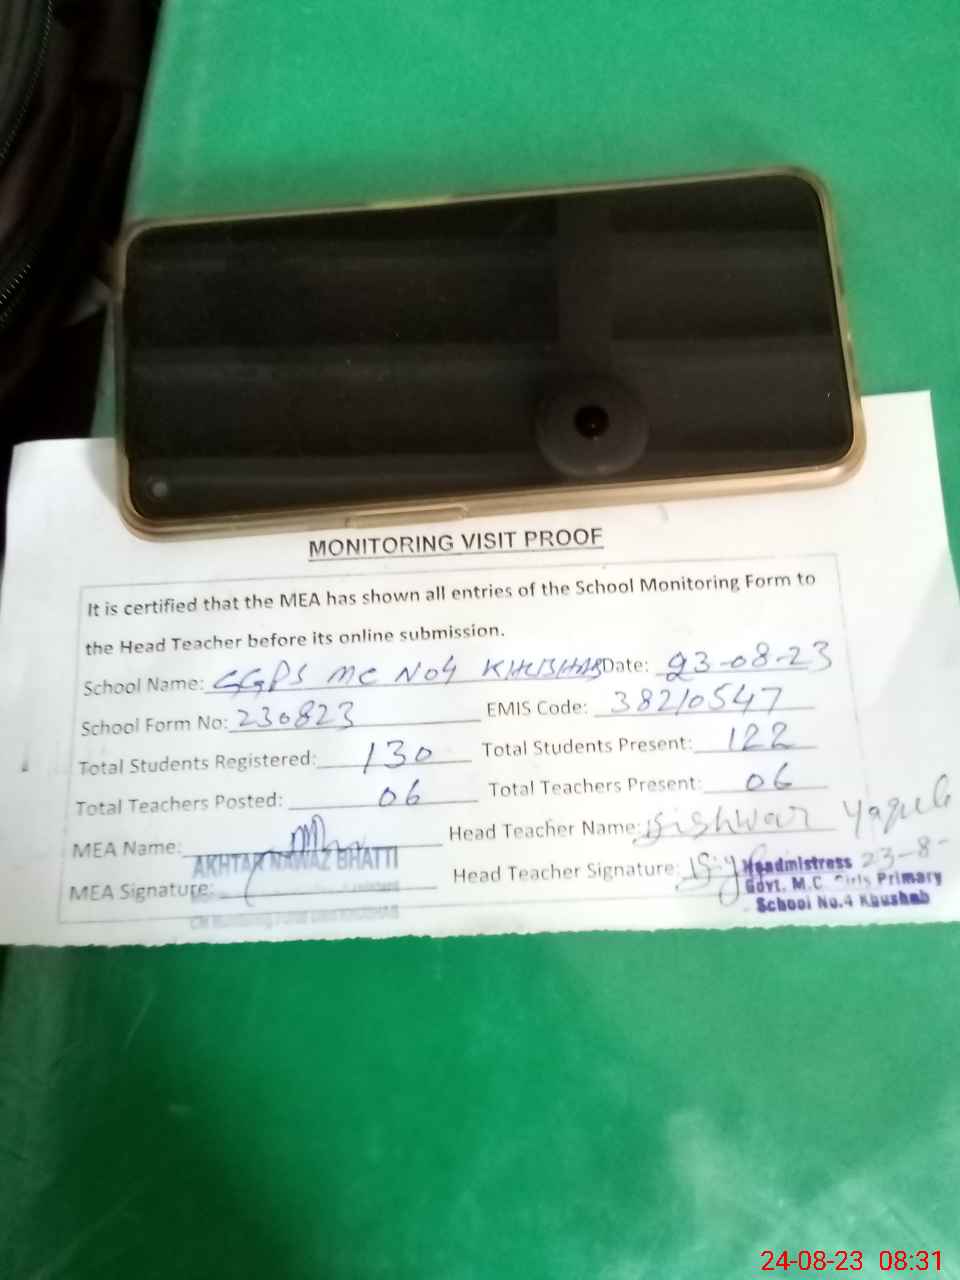 MONITORING VISIT PROOF
It is certified that the MEA has shown all entries of the School Monitoring Form to
the Head Teacher before its online submission.
School Name: GGPS MC No4 KHUSHAB Date: 23-08-23
School Form No: 230823 EMIS Code: 38210547
Total Students Registered: 130 Total Students Present: 122
Total Teachers Posted: 06 Total Teachers Present: 06
MEA Name: Head Teacher Name: Kishwar Yaqub
AKHTAR NAWAZ BHATTI
MEA Signature: Head Teacher Signature:
Headmistress 23-8-
Govt. M.C. Girls Primary
School No.4 Khushab
24-08-23 08:31